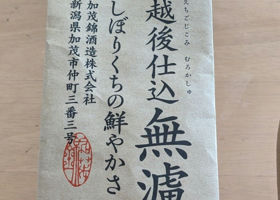 越後仕込
えちごじこみ
無濾
むろかしゅ
しぼりくちの鮮やかさ
加茂錦酒造株式会社
新潟県加茂市仲町三番三号